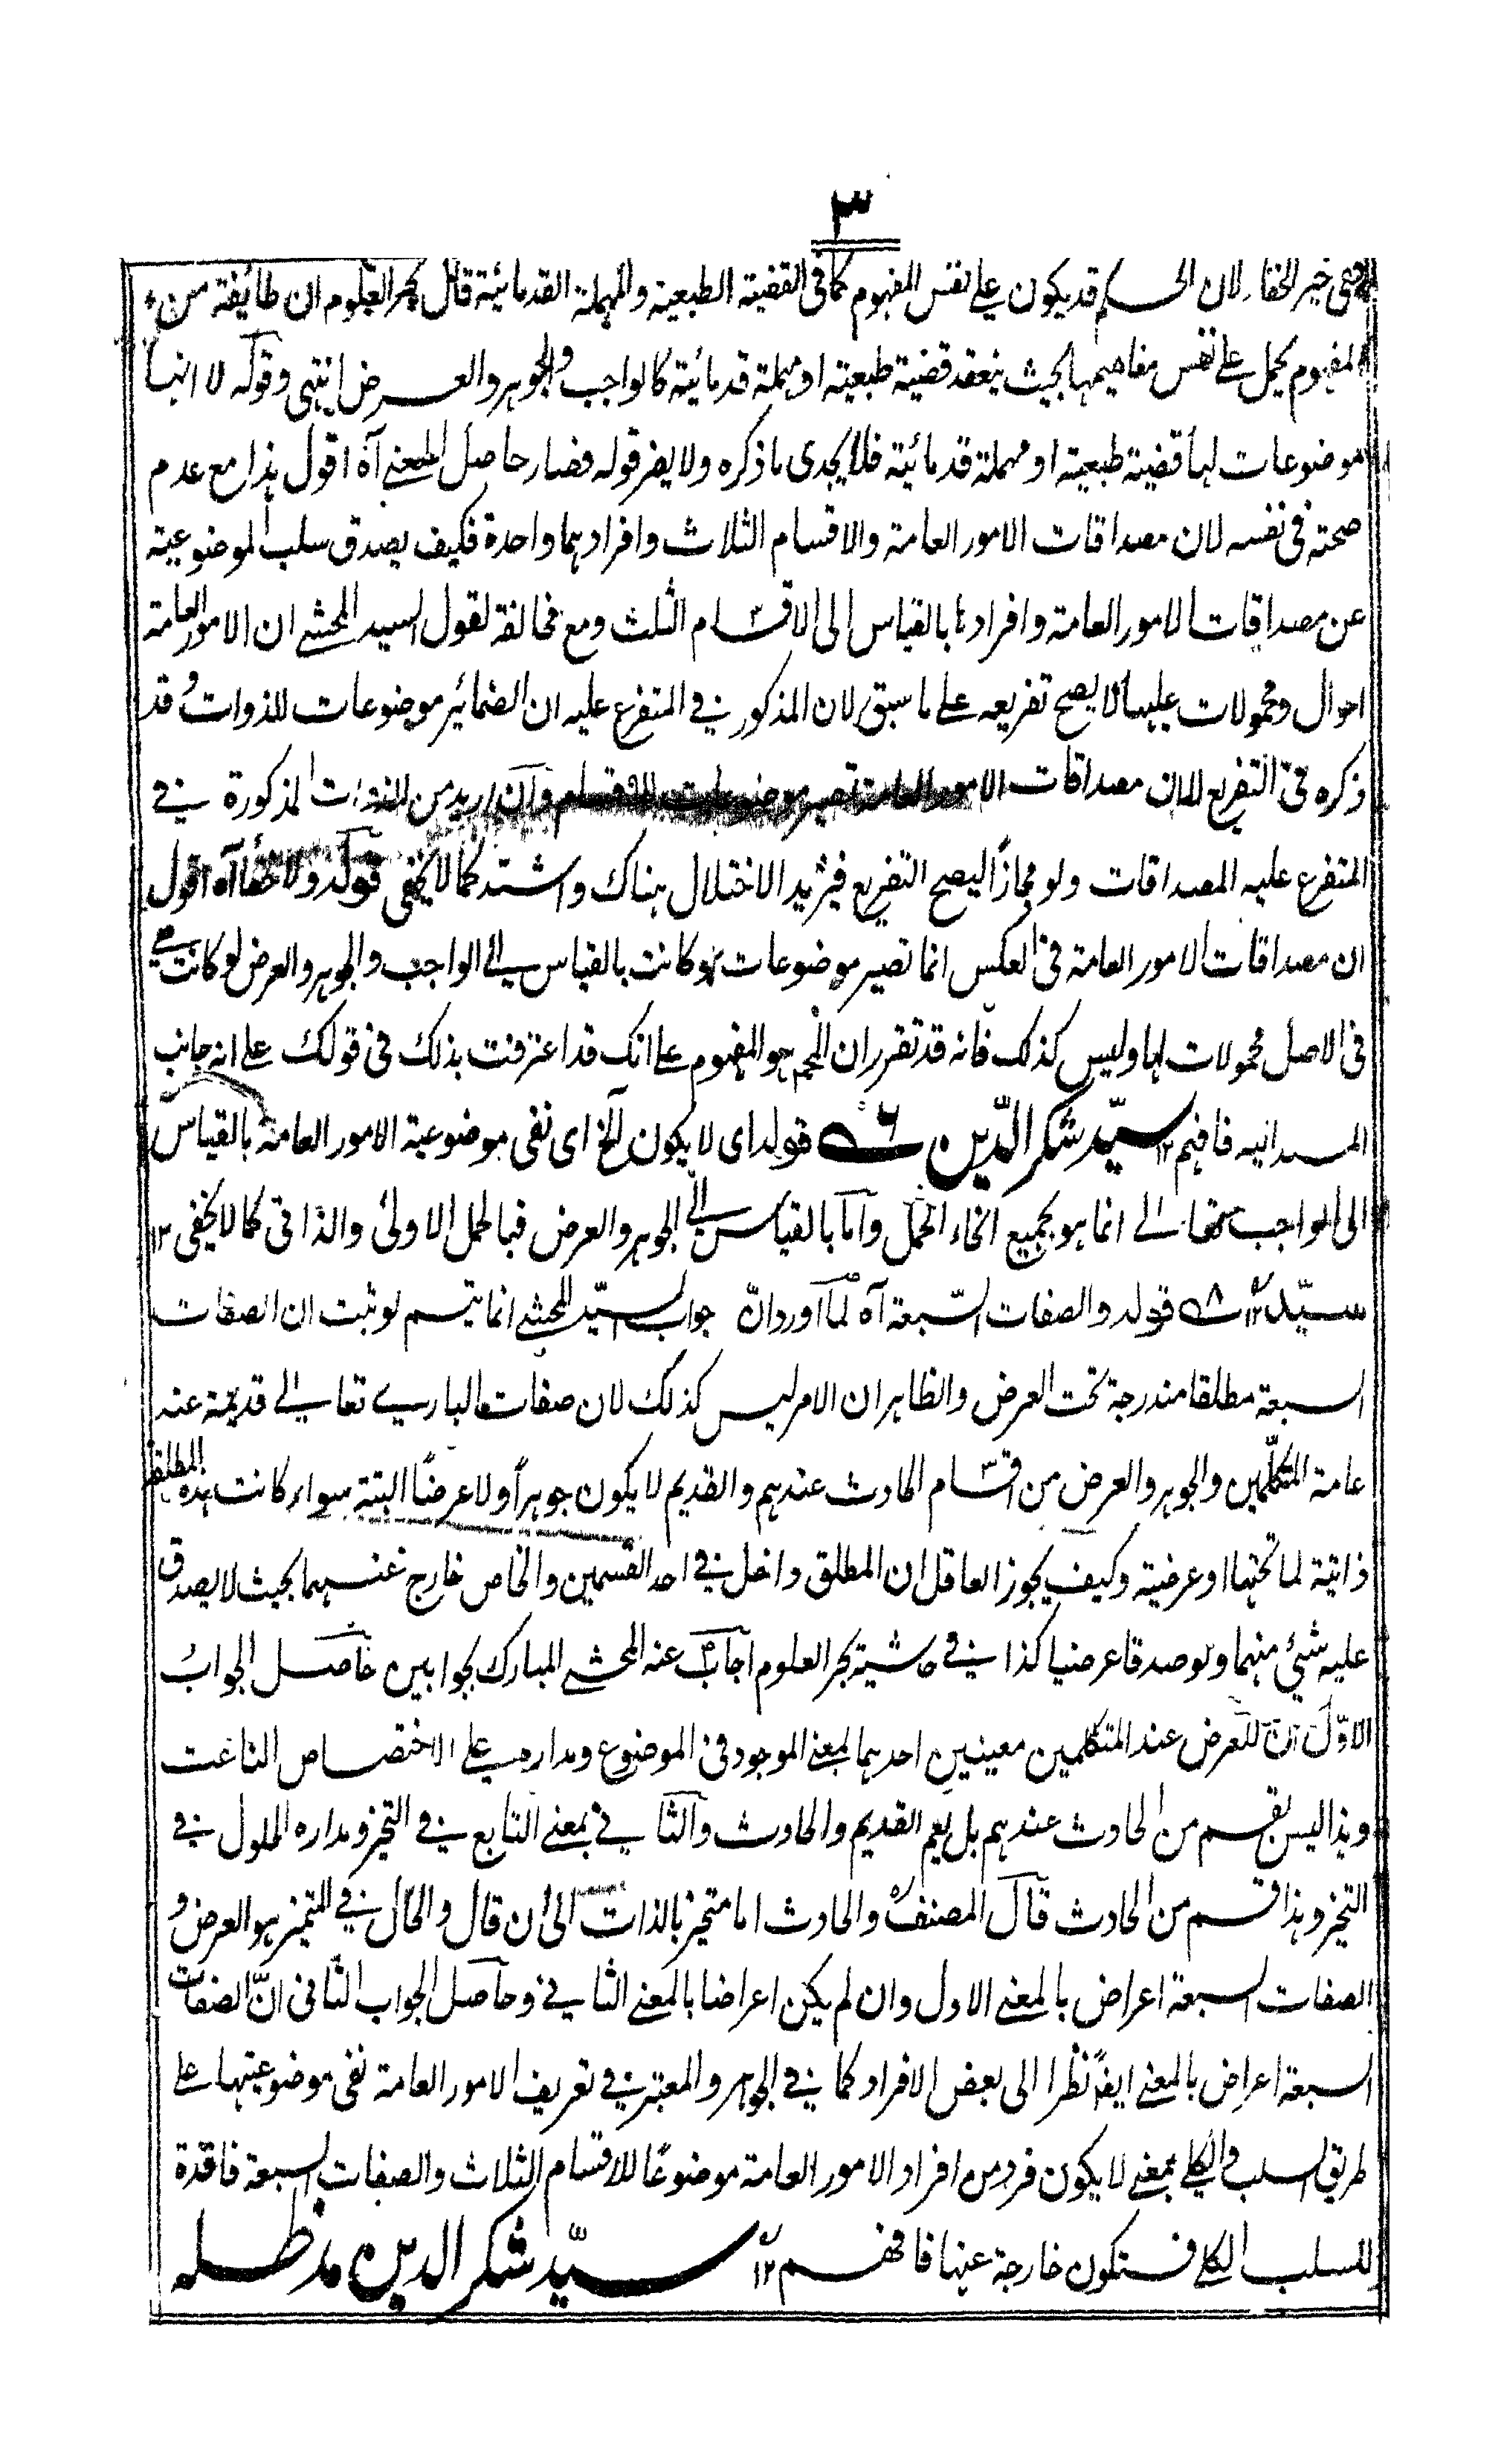 ٣
خير الخفاء لان الحكم قد يكون على نفس المفهوم كما فى القضية الطبعية والمهملة القدمائية قال بحر العلوم ان طائفة من
المفهوم يحمل على نفس مفاهيمها بحيث ينعقد قضية طبعية او مهملة قدمائية كالواجب والجوهر والعرض انتهى وقوله لا انها
موضوعات لها قضية طبعية او مهملة قدمائية فلا يجدى ما ذكره ولا يضر قوله فصار حاصل المعنى آه اقول هذا مع عدم
صحته فى نفسه لان مصداقات الامور العامة والاقسام الثلاث وافرادهما واحدة فكيف يصدق سلب الموضوعية
عن مصداقات الامور العامة وافرادها بالقياس الى الاقسام الثلث ومع مخالفة لقول السيد المحشى ان الامور العامة
احوال ومحمولات عليها لا يصح تفريعه على ما سبق لان المذكور فى المتفرع عليه ان الضمائير موضوعات للذوات وقد
ذكره فى التفريع للان مصداقات الامور العامة تصير موضوعات للاقسام وان اريد من الذوات المذكورة فى
المتفرع عليه المصداقات ولو مجازًا ليصح التفريع فيزيد الاختلال هناك واشتد كما لا يخفى قوله ولا خفأ آه اقول
ان مصداقات الامور العامة فى العكس انما تصير موضوعات لو كانت بالقياس الى الواجب والجوهر والعرض لو كانت هى
فى الاصل محمولات لها وليس كذلك فانه قد تقرر ان المحمول هو المفهوم على انك قد اعترفت بذلك فى قولك على انه جانب
المسدانيه فافهم ١٢ سيّد شكر الدّين ٦ قوله اى لا يكون الخ اى نفى موضوعية الامور العامة بالقياس
الى الواجب تعالى انما هو بجميع انحاء الحمل وأما بالقياس الى الجوهر والعرض فبالحمل الاولى والذاتى كما لا يخفى ١٢
سيّد ١٢ ٨ قوله والصفات السّبعة آه لمّا اورد انّ جواب السيّد المحشى انما يتم لو ثبت ان الصفات
السبعة مطلقا مندرجة تحت العرض والظاهر ان الامر ليس كذلك لان صفات البارى تعالى قديمة عند
عامة المتكلّمين والجوهر والعرض من اقسام الحادث عندهم والقديم لا يكون جوهراً ولا عرضًا البتة سواء كانت هذه المطلقة
ذاتية لما تحتها او عرضية وكيف يجوز العاقل ان المطلق داخل فى احد القسمين والخاص خارج عنهما بحيث لا يصدق
عليه شئ منهما ولو صدقا عرضيا كذا فى حاشية بحر العلوم اجاب عنه المحشى المبارك بجوابين حاصل الجواب
الاوّل ان للعرض عند المتكلمين معينين احدهما بمعنى الموجود فى الموضوع ومداره على الاختصاص الناعت
وهذا ليس بقسم من الحادث عندهم بل يعم القديم والحادث والثانى بمعنى التابع فى التحيز ومداره الحلول فى
التحيز وهذا قسم من الحادث قال المصنف والحادث اما متحيز بالذات الى ان قال والحال فى المتحيز هو العرض و
الصفات السبعة اعراض بالمعنى الاول وان لم يكن اعراضا بالمعنى الثانى وحاصل الجواب الثانى انّ الصفات
السبعة اعراض بالمعنى ايضً نظرا الى بعض الافراد كما فى الجوهر والمعتبر فى تعريف الامور العامة نفى موضوعيتها على
طريق السلب الكلى بمعنى لا يكون فرد من افراد الامور العامة موضوعًا للاقسام الثلاث والصفات السبعة فاقدة
للسلب الكلى فتكون خارجة عنها فافهم ١٢ سيّد شكر الدين مد ظله